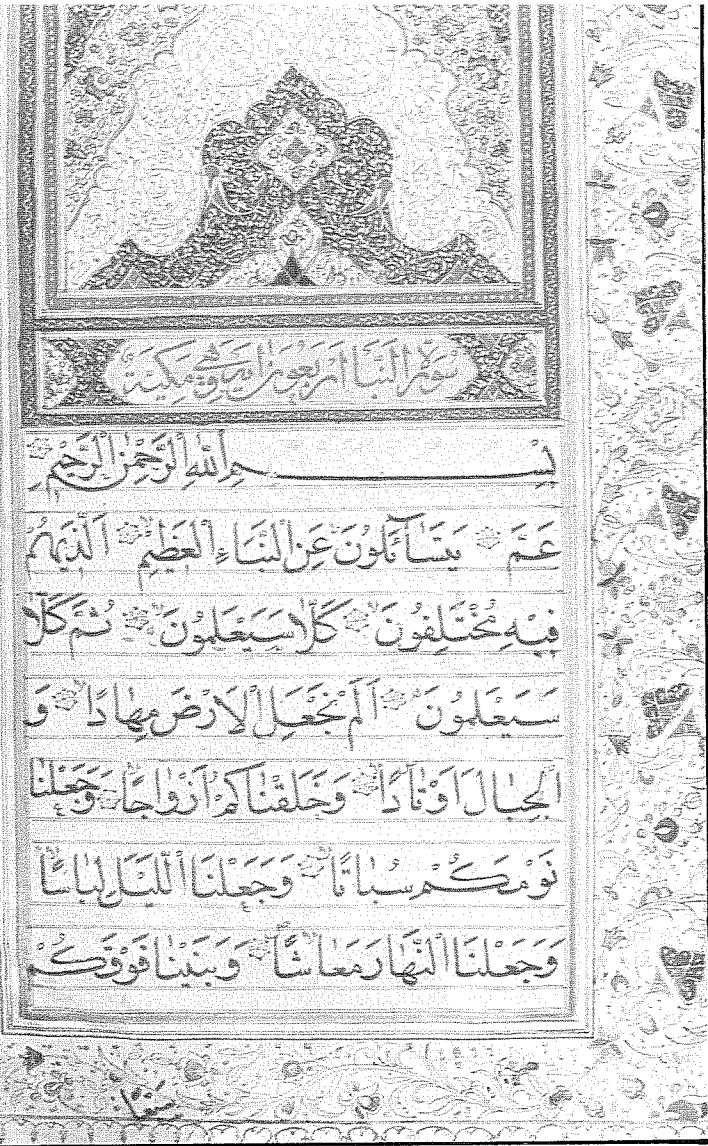 سورة النبأ اربعون اية وهي مكية
بِسْمِ اللهِ الرَّحْمٰنِ الرَّحِيْمِ
عَمَّ يَتَسَآئَلُوْنَ عَنِ النَّبَاءِ الْعَظِيْمِ اَلَّذِيْ هُمْ
فِيْهِ مُخْتَلِفُوْنَ كَلَّا سَيَعْلَمُوْنَ ثُمَّ كَلَّا
سَيَعْلَمُوْنَ اَلَمْ نَجْعَلِ الْاَرْضَ مِهٰادًا وَ
الْجِبٰالَ اَوْتٰادًا وَخَلَقْنٰاكُمْ اَزْوٰاجًا وَجَعَلْنٰا
نَوْمَكُمْ سُبٰاتًا وَجَعَلْنَا اللَّيْلَ لِبٰاسًا
وَجَعَلْنَا النَّهٰارَ مَعٰاشًا وَبَنَيْنٰا فَوْقَكُمْ
سَبْعًا